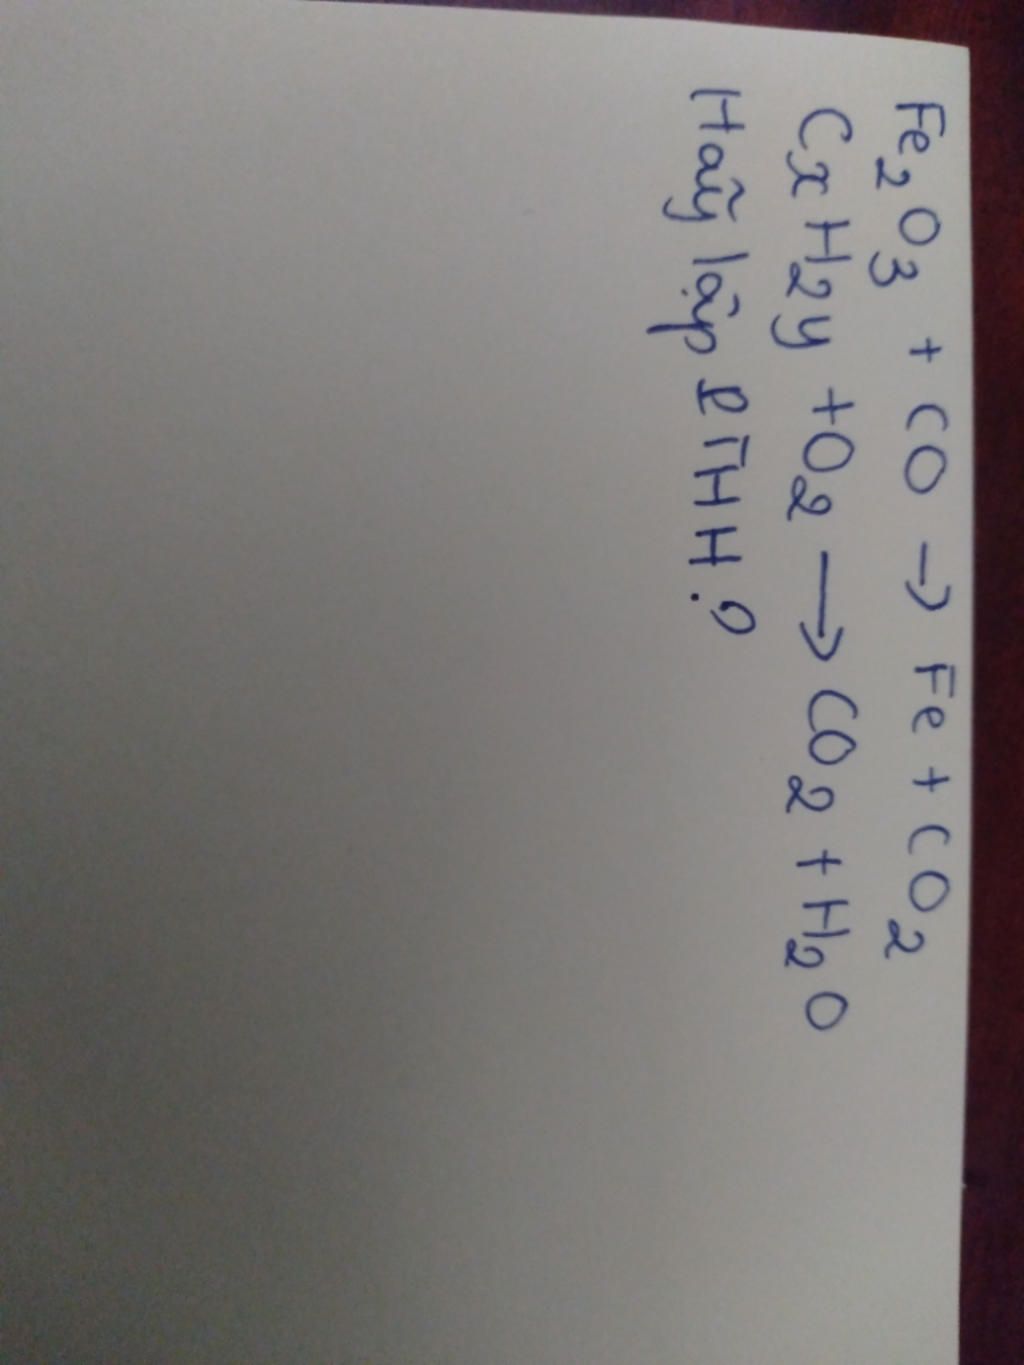 Fe2O3 + CO → Fe + CO2
CxH2y + O2 → CO2 + H2O
Hãy lập PTHH?